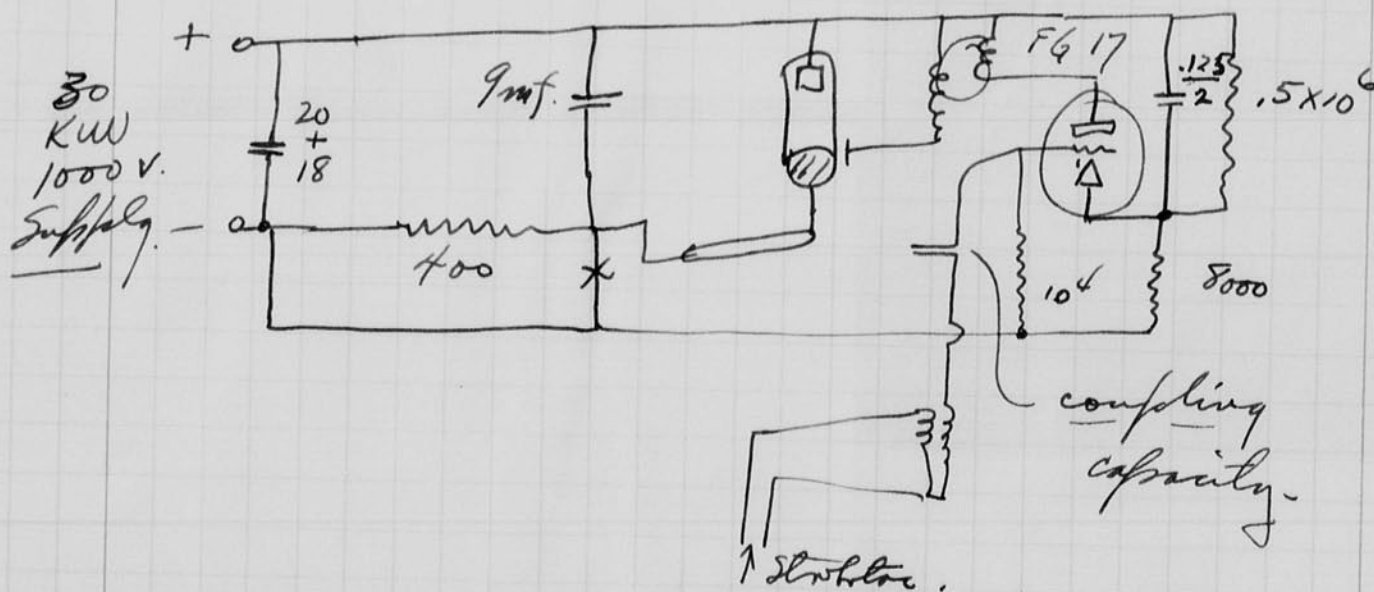 +
30
KW
1000 V.
Supply
-
20
+
18
9 mf.
400
X
FG 17
.125
2
.5 X 10⁶
10⁴
8000
coupling
capacity.
↑ Strobotac.